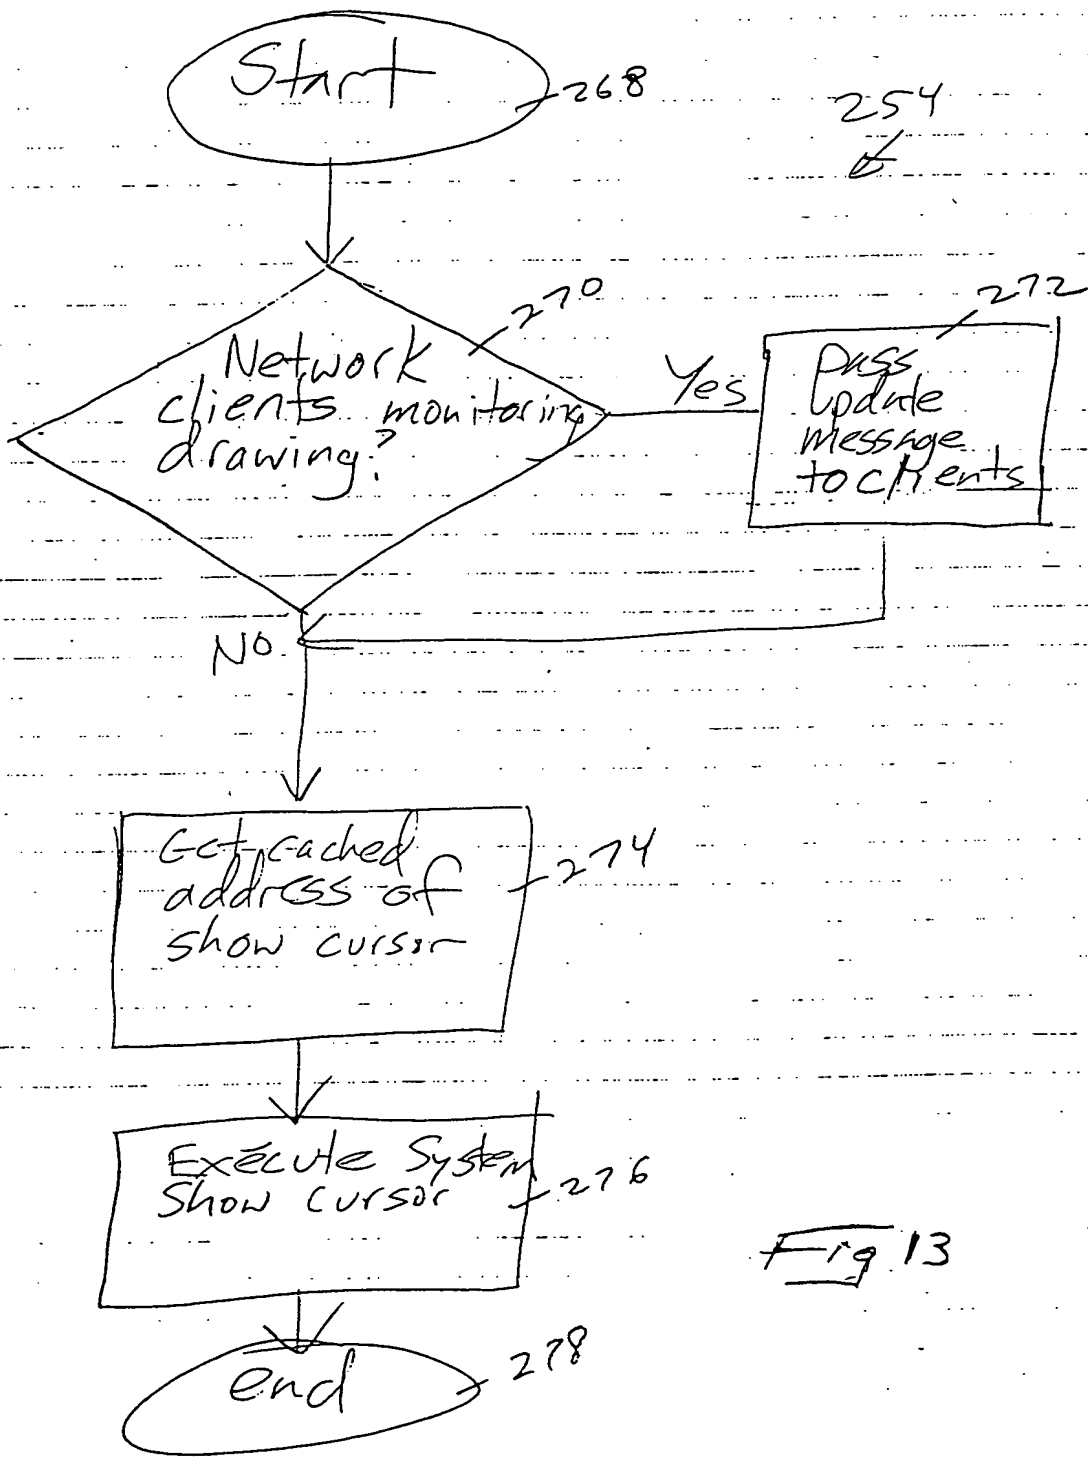 Start
268
254
270
272
Network
clients monitoring
drawing?
Yes
pass
update
message
to clients
NO
Get cached
address of
show cursor
274
Execute System
Show cursor
276
Fig 13
end
278